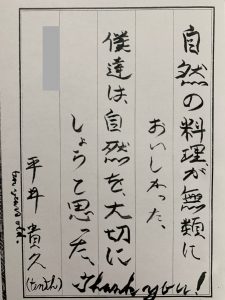 自然の料理が無類に
おいしかった、
僕達は、自然を、大切に
しようと思った、
平井貴久
(tenth)
ten years old.
Thank you!